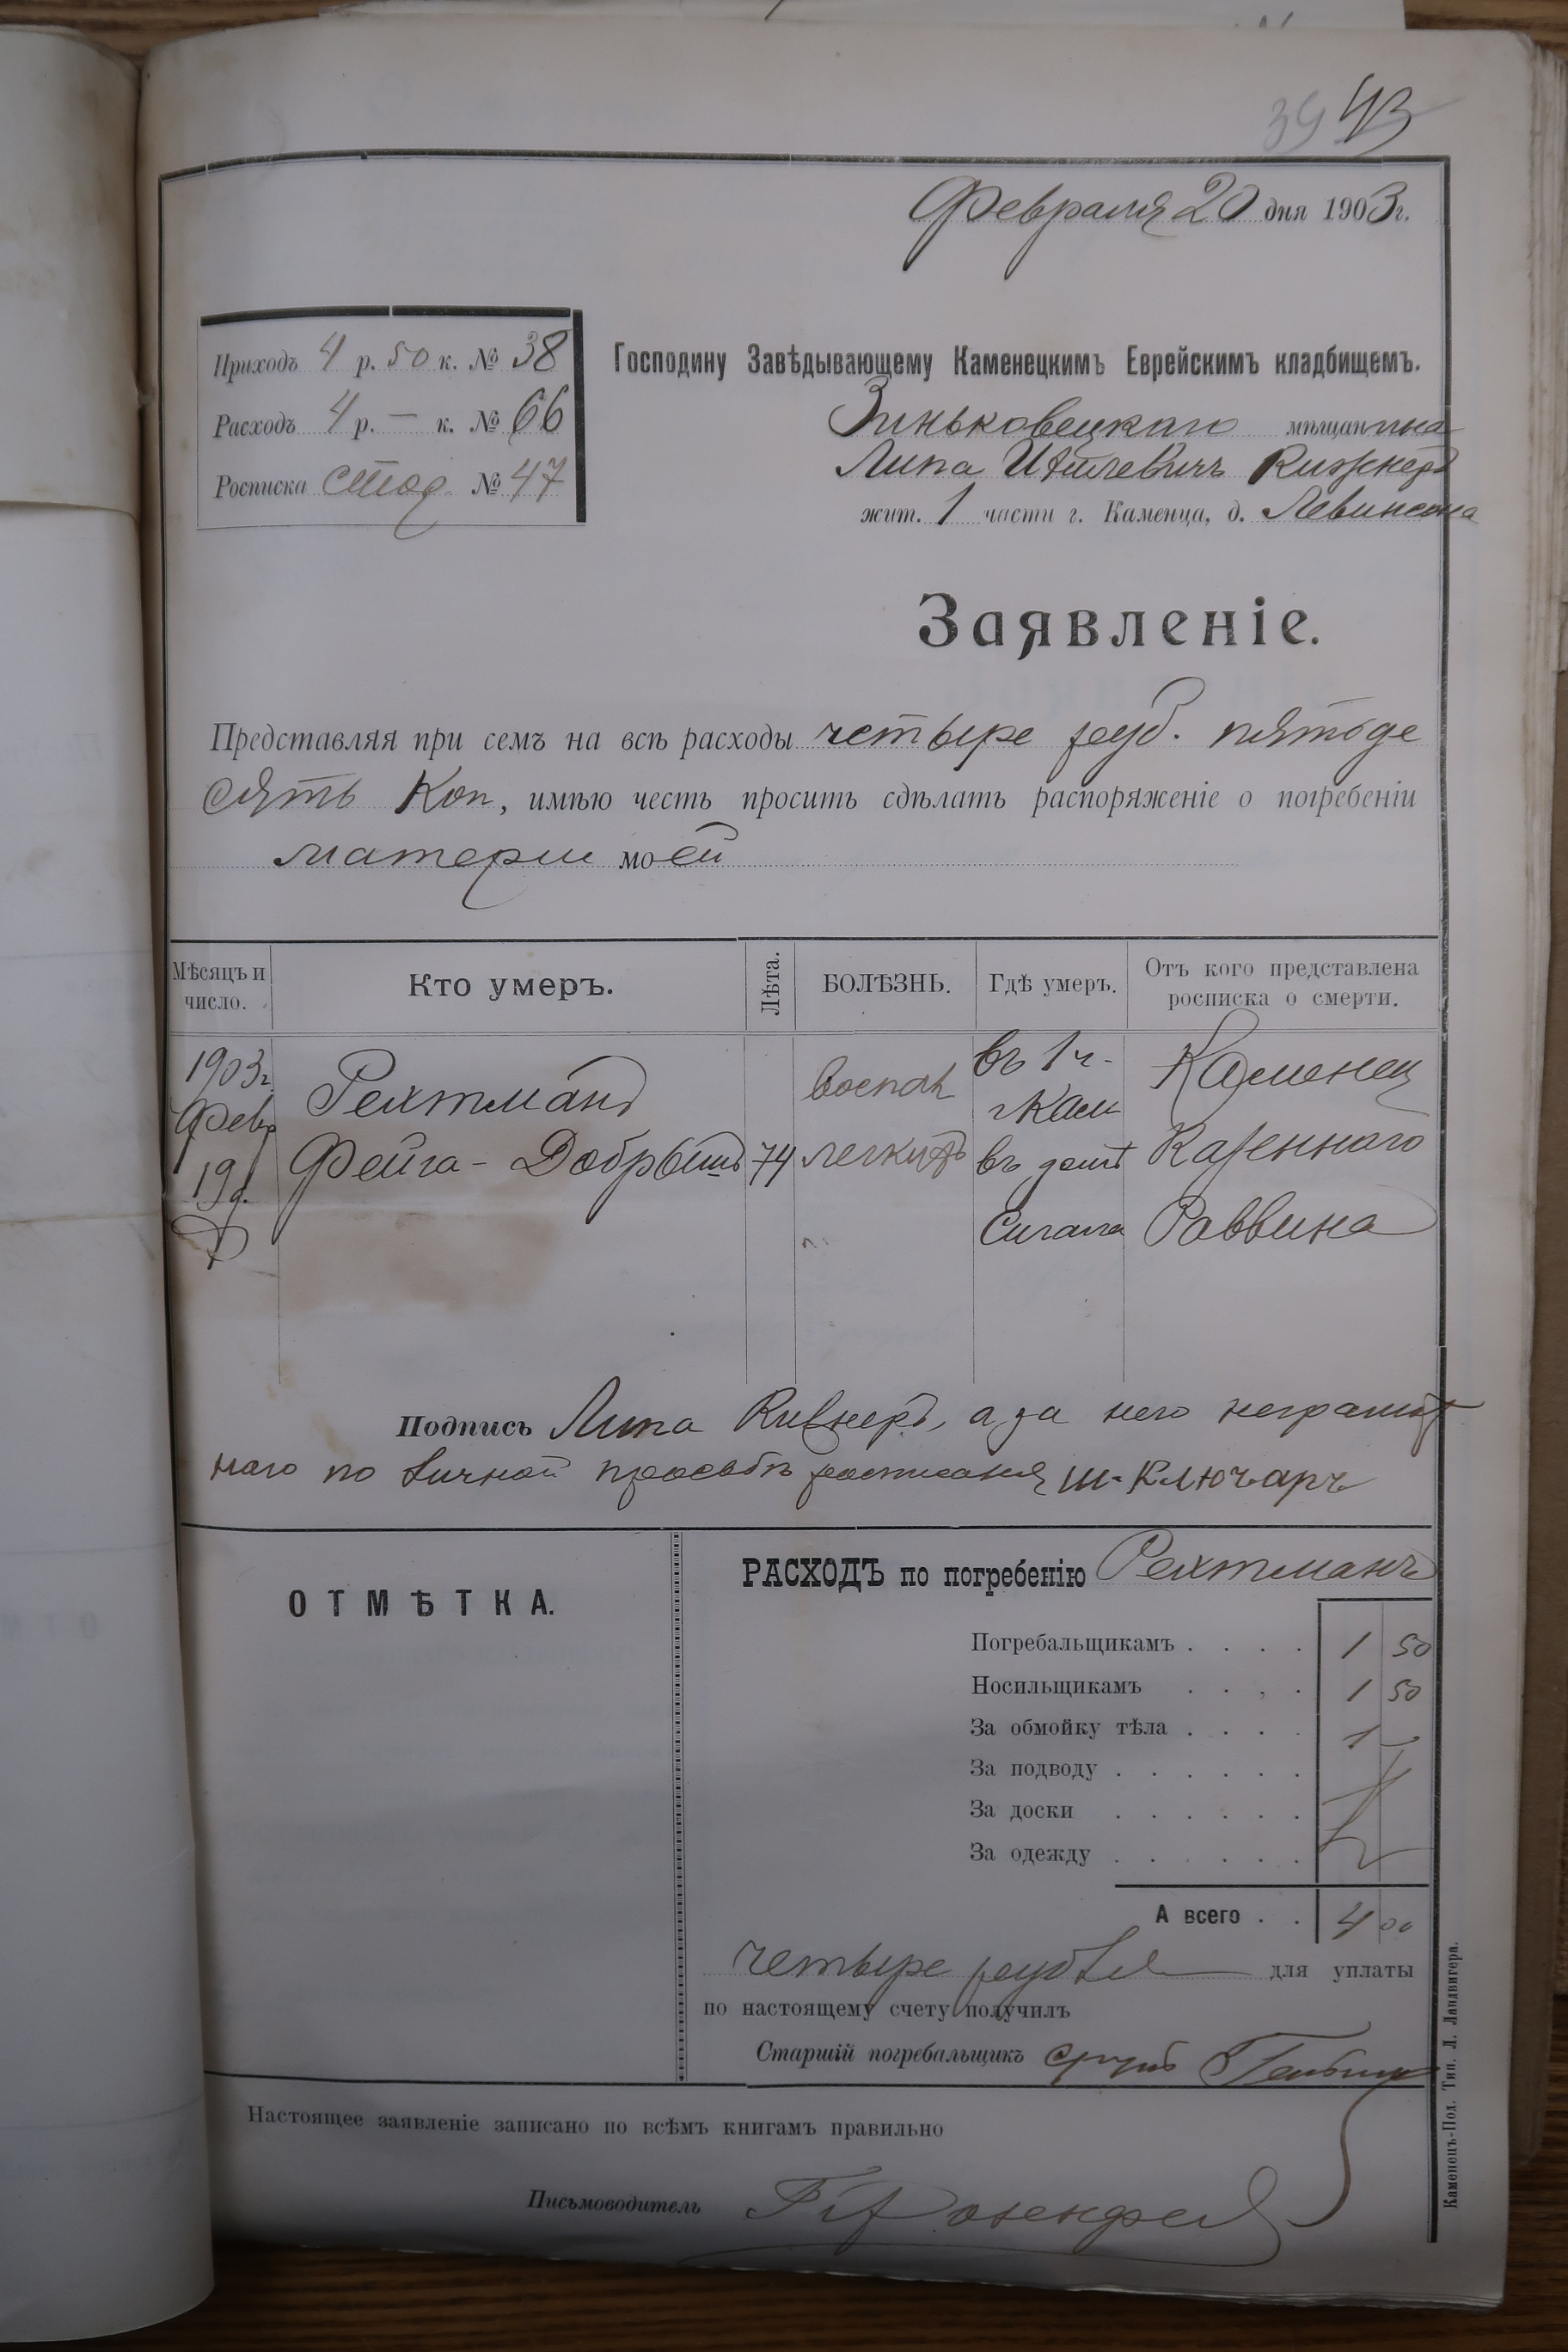 39 43
Февраля 20 дня 1903 г.
Приходъ 4 р. 50 к. № 38
Расходъ 4 р. — к. № 66
Росписка № 47
Господину Завѣдывающему Каменецкимъ Еврейскимъ кладбищемъ.
Зиньковецкаго мѣщанина
Липа Кижнеръ
жит. 1 части г. Каменца, д. Левинсона
Заявленіе.
Представляя при семъ на всѣ расходы четыре руб. пятьде
сятъ Коп, имѣю честь просить сдѣлать распоряженіе о погребеніи
матери моей
Мѣсяцъ и число.
Кто умеръ.
Лѣта.
БОЛѢЗНЬ.
Гдѣ умеръ.
Отъ кого представлена росписка о смерти.
1903 г.
Февр
19 д.
Рехтманъ
Фейга - Добрышъ
74
воспал
легкихъ
въ 1 ч.
г Кам
въ домѣ
Сигала
Каменец
Казеннаго
Раввина
Подпись Липа Кижнеръ, а за него неграмот
наго по личной просьбѣ росписался Ш. Ключаръ
ОТМѢТКА.
РАСХОДЪ по погребенію Рехтманъ
Погребальщикамъ . . . . 1 50
Носильщикамъ . . . . 1 50
За обмойку тѣла . . . . 1 —
За подводу . . . . . .
За доски . . . . . .
За одежду . . . . . .
А всего . . 4 00
четыре рубля для уплаты
по настоящему счету получилъ
Старшій погребальщикъ
Настоящее заявленіе записано по всѣмъ книгамъ правильно
Письмоводитель Розенфельд
Каменецъ-Под. Тип. Л. Ландвигера.